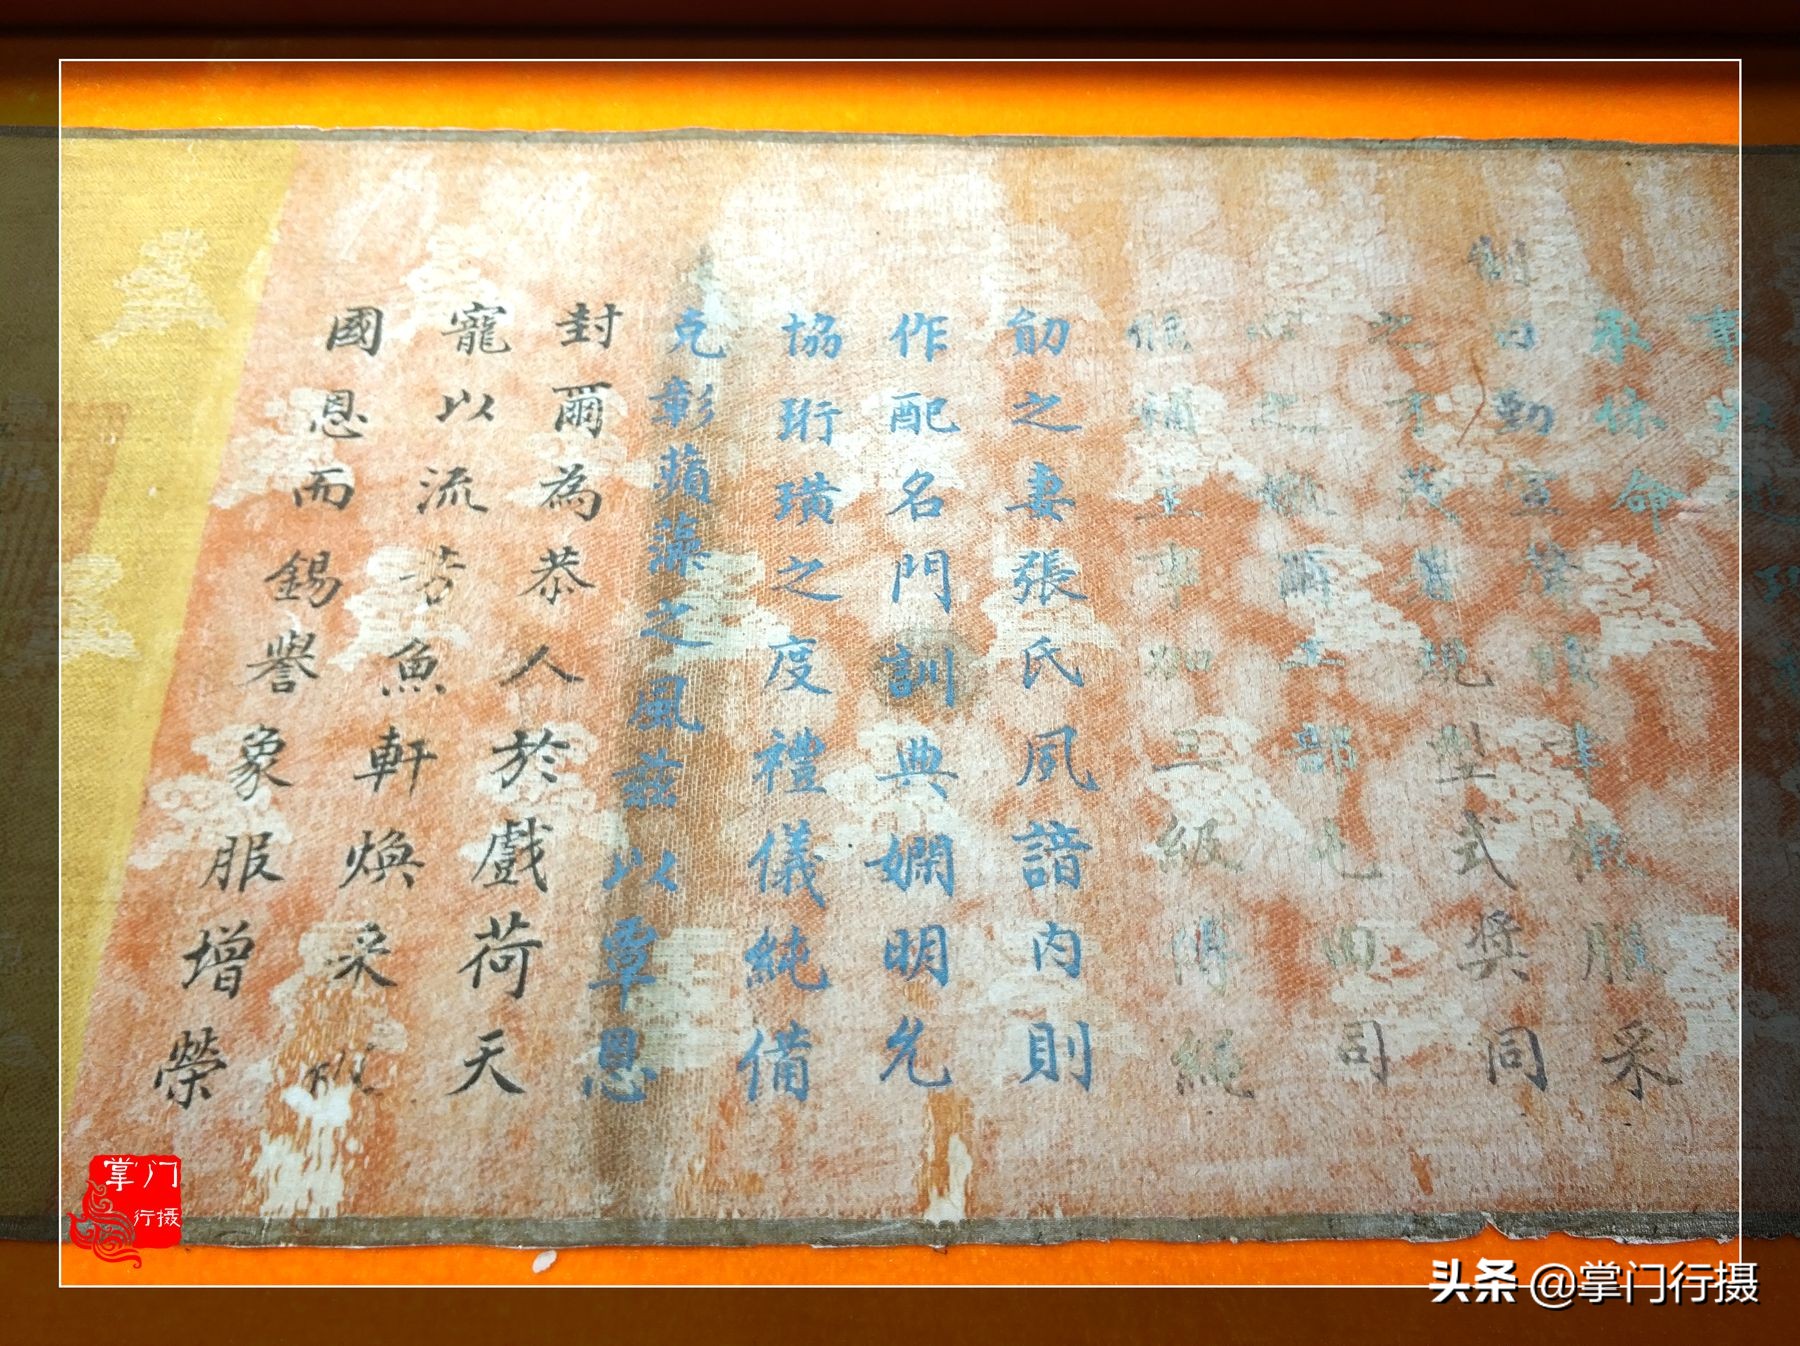 承休命
制曰勤宣車服采
之才茂著型式奨同
爾工部屯田司
候補主事加三級傅繩
之妻張氏夙諳內則
作配名門訓典嫻明允
協珩璜之度禮儀純備
克彰蘋藻之風茲以覃恩
封爾為恭人於戲荷天
寵以流芳魚軒煥采被
國恩而錫譽象服增榮
掌门
行摄
头条 @掌门行摄